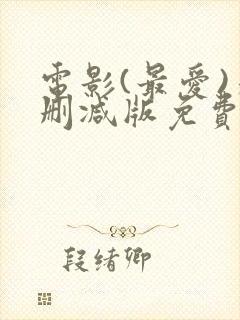 電影(最愛)
刪減版免費
段緒卿